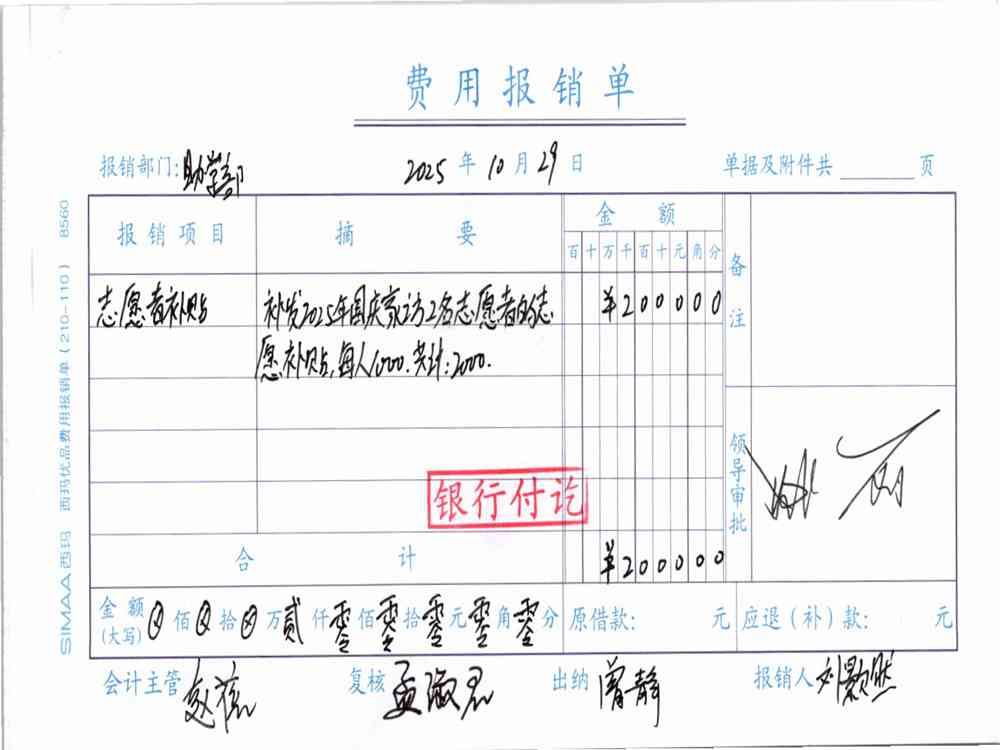 费用报销单
报销部门:助学部 2025年10月29日 单据及附件共 页
报销项目 摘要 金额 备注
百十万千百十元角分
志愿者补贴 补发2025年国庆家访2名志愿者的志 ¥200000
愿补贴,每人1000.共计:2000.
银行付讫
领导审批
合计 ¥200000
金额(大写) 佰 拾 万贰仟零佰零拾零元零角零分 原借款: 元 应退(补)款: 元
会计主管 复核 孟淑君 出纳 曾静 报销人 刘颢然
SIMAA西玛 西玛优品费用报销单(210-110) 8560